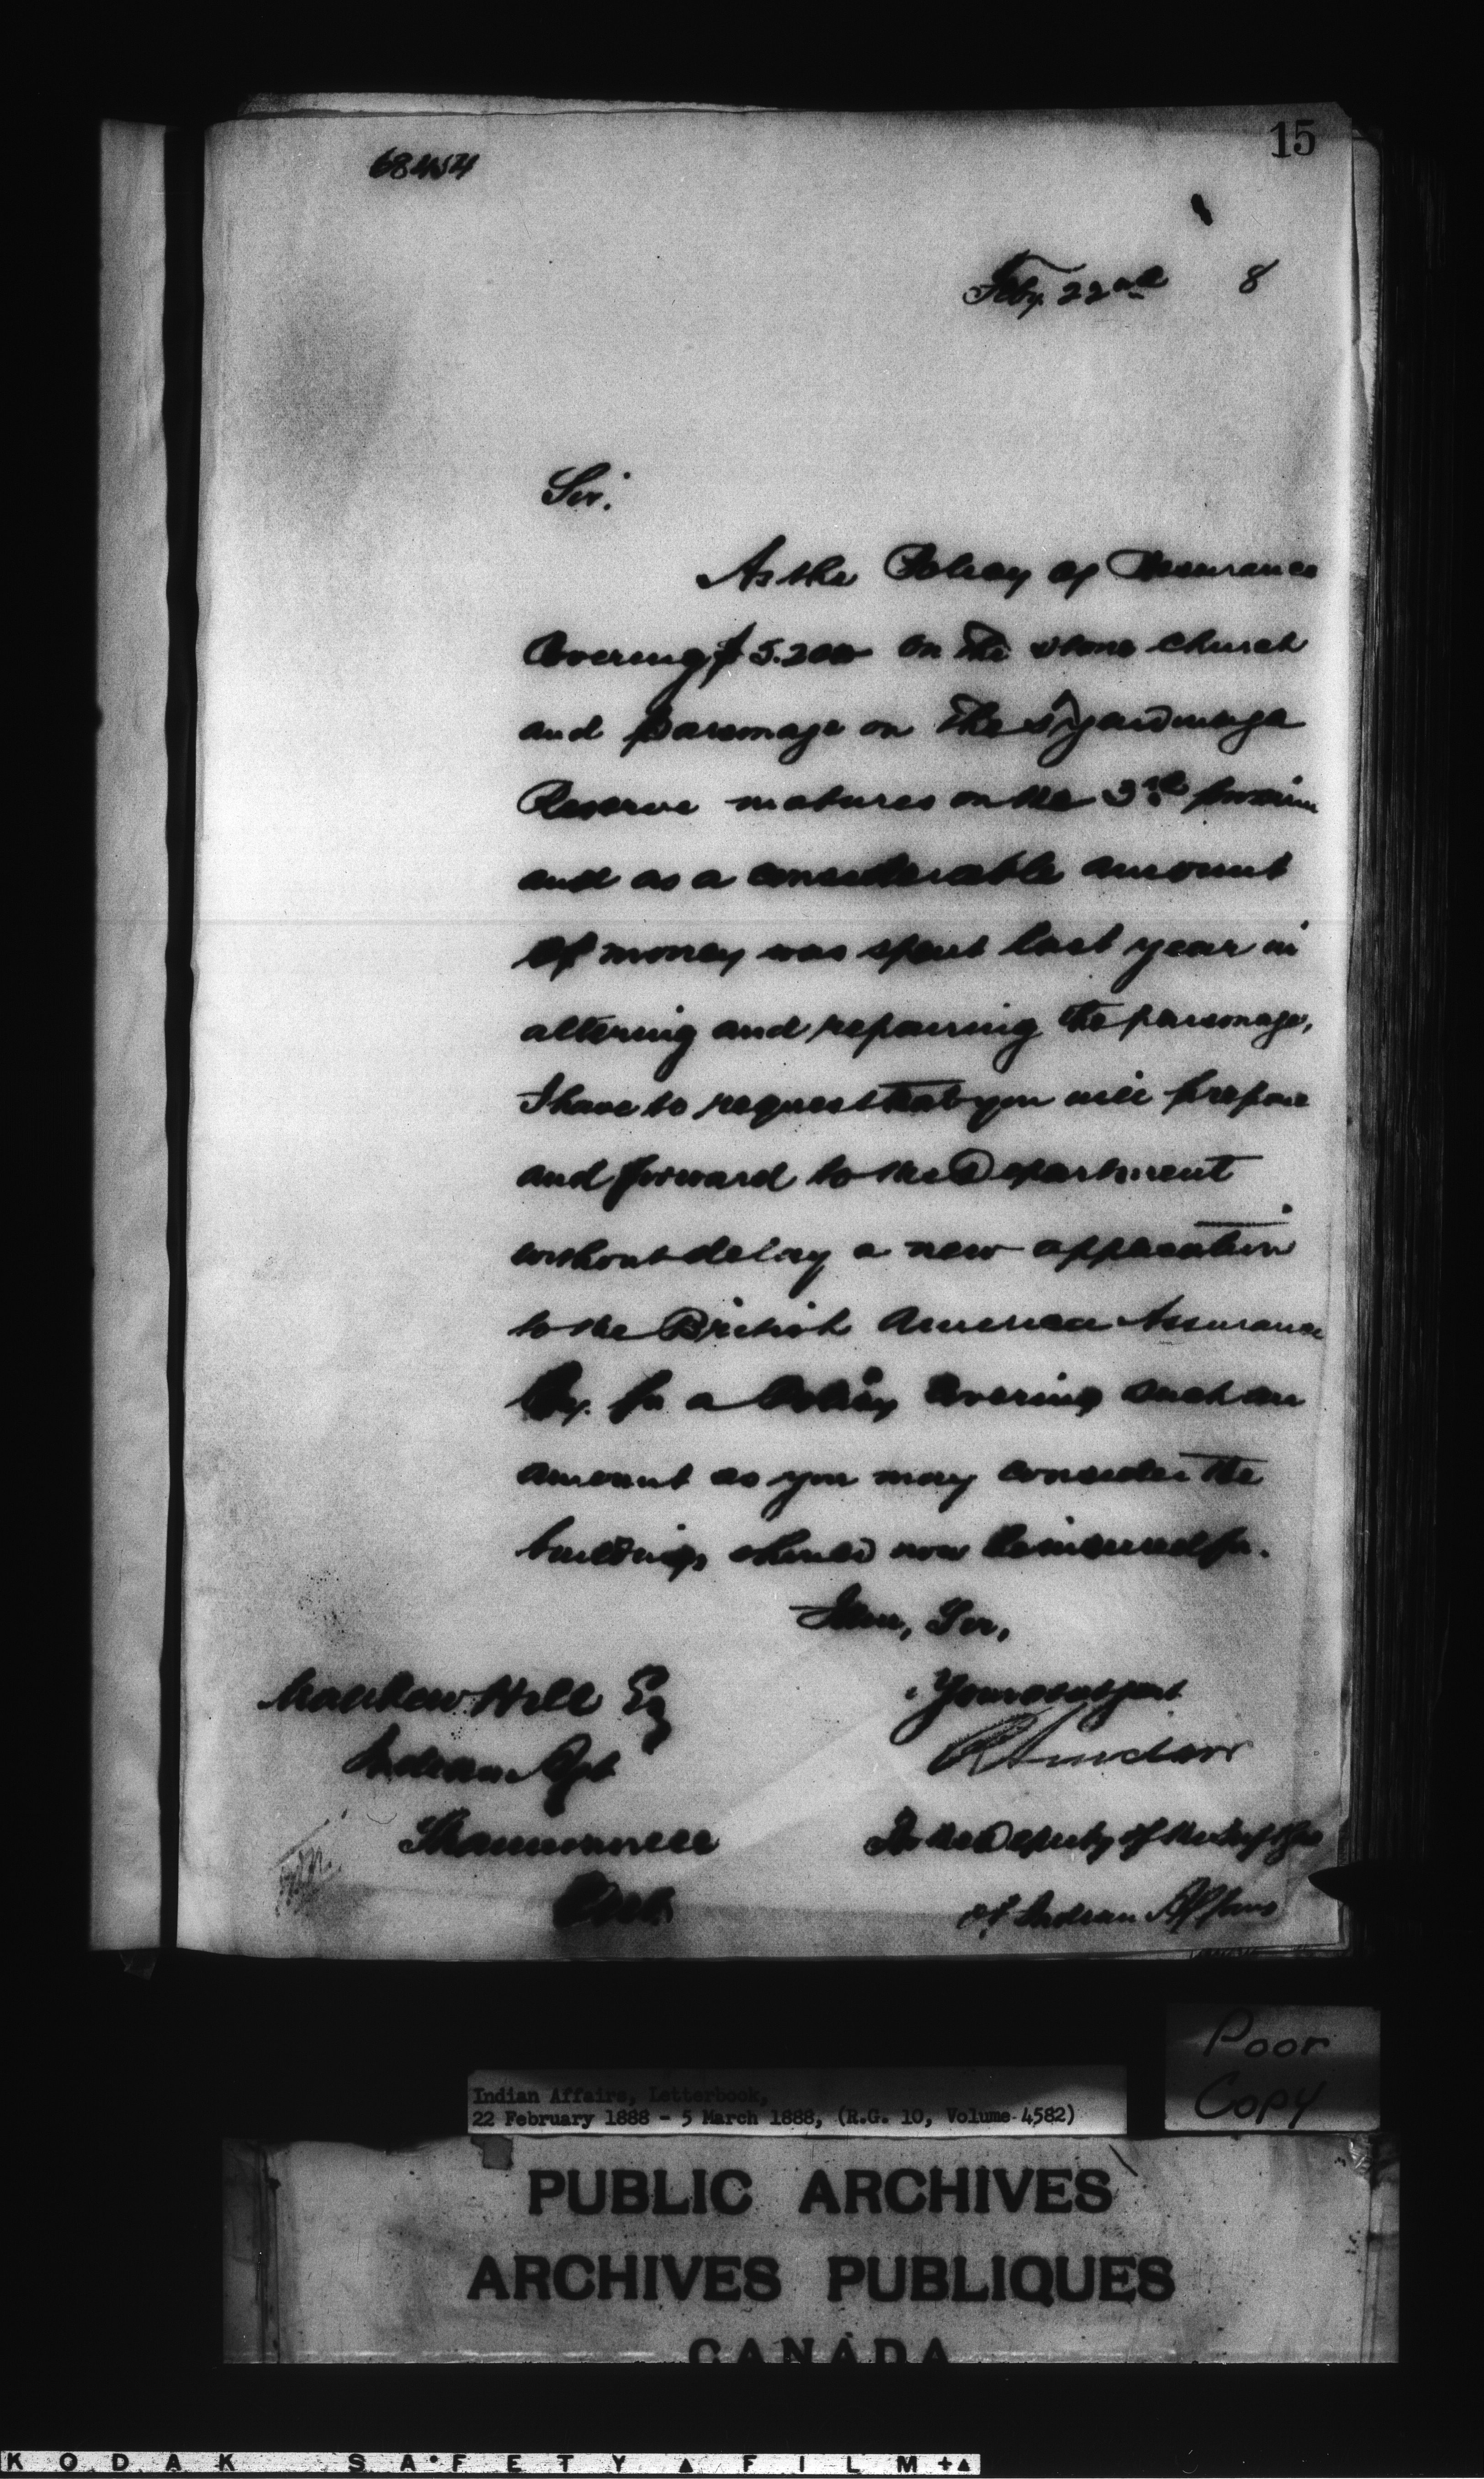 15
68454
Feby. 22nd 8
Sir.
As the Policy of Assurance
Covering $5.200 on the stone church
and parsonage on the Tyendinaga
Reserve matures on the 3rd proximo
and as a considerable amount
of money was spent last year in
altering and repairing the parsonage,
I have to request that you will prepare
and forward to the Department
without delay a new application
to the British America Assurance
Coy. for a Policy Covering such an
amount as you may consider the
buildings should now be insured for.
I am, Sir,
Your obt Servt
Matthew Hill Esq
R Sinclair
Indian Agt
Shannonville
For the Deputy of the Supt Genl
Ont.
of Indian Affairs
Poor
Copy
Indian Affairs, Letterbook,
22 February 1888 - 5 March 1888, (R.G. 10, Volume 4582)
PUBLIC ARCHIVES
ARCHIVES PUBLIQUES
CANADA
KODAK SAFETY FILM